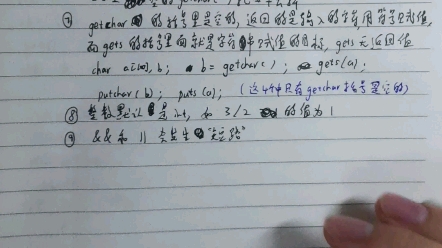 ⑦ getchar 的括号里是空的, 返回的是输入的字符, 用等号赋值,
而 gets 的括号里面就是字符串赋值的目标, gets 无返回值
char a[100], b; b = getchar(); gets(a);
putchar(b); puts(a); (这4个中只有getchar括号是空的)
⑧ 整数默认是 int, 如 3/2 的值为 1
⑨ && 和 || 会发生"短路"